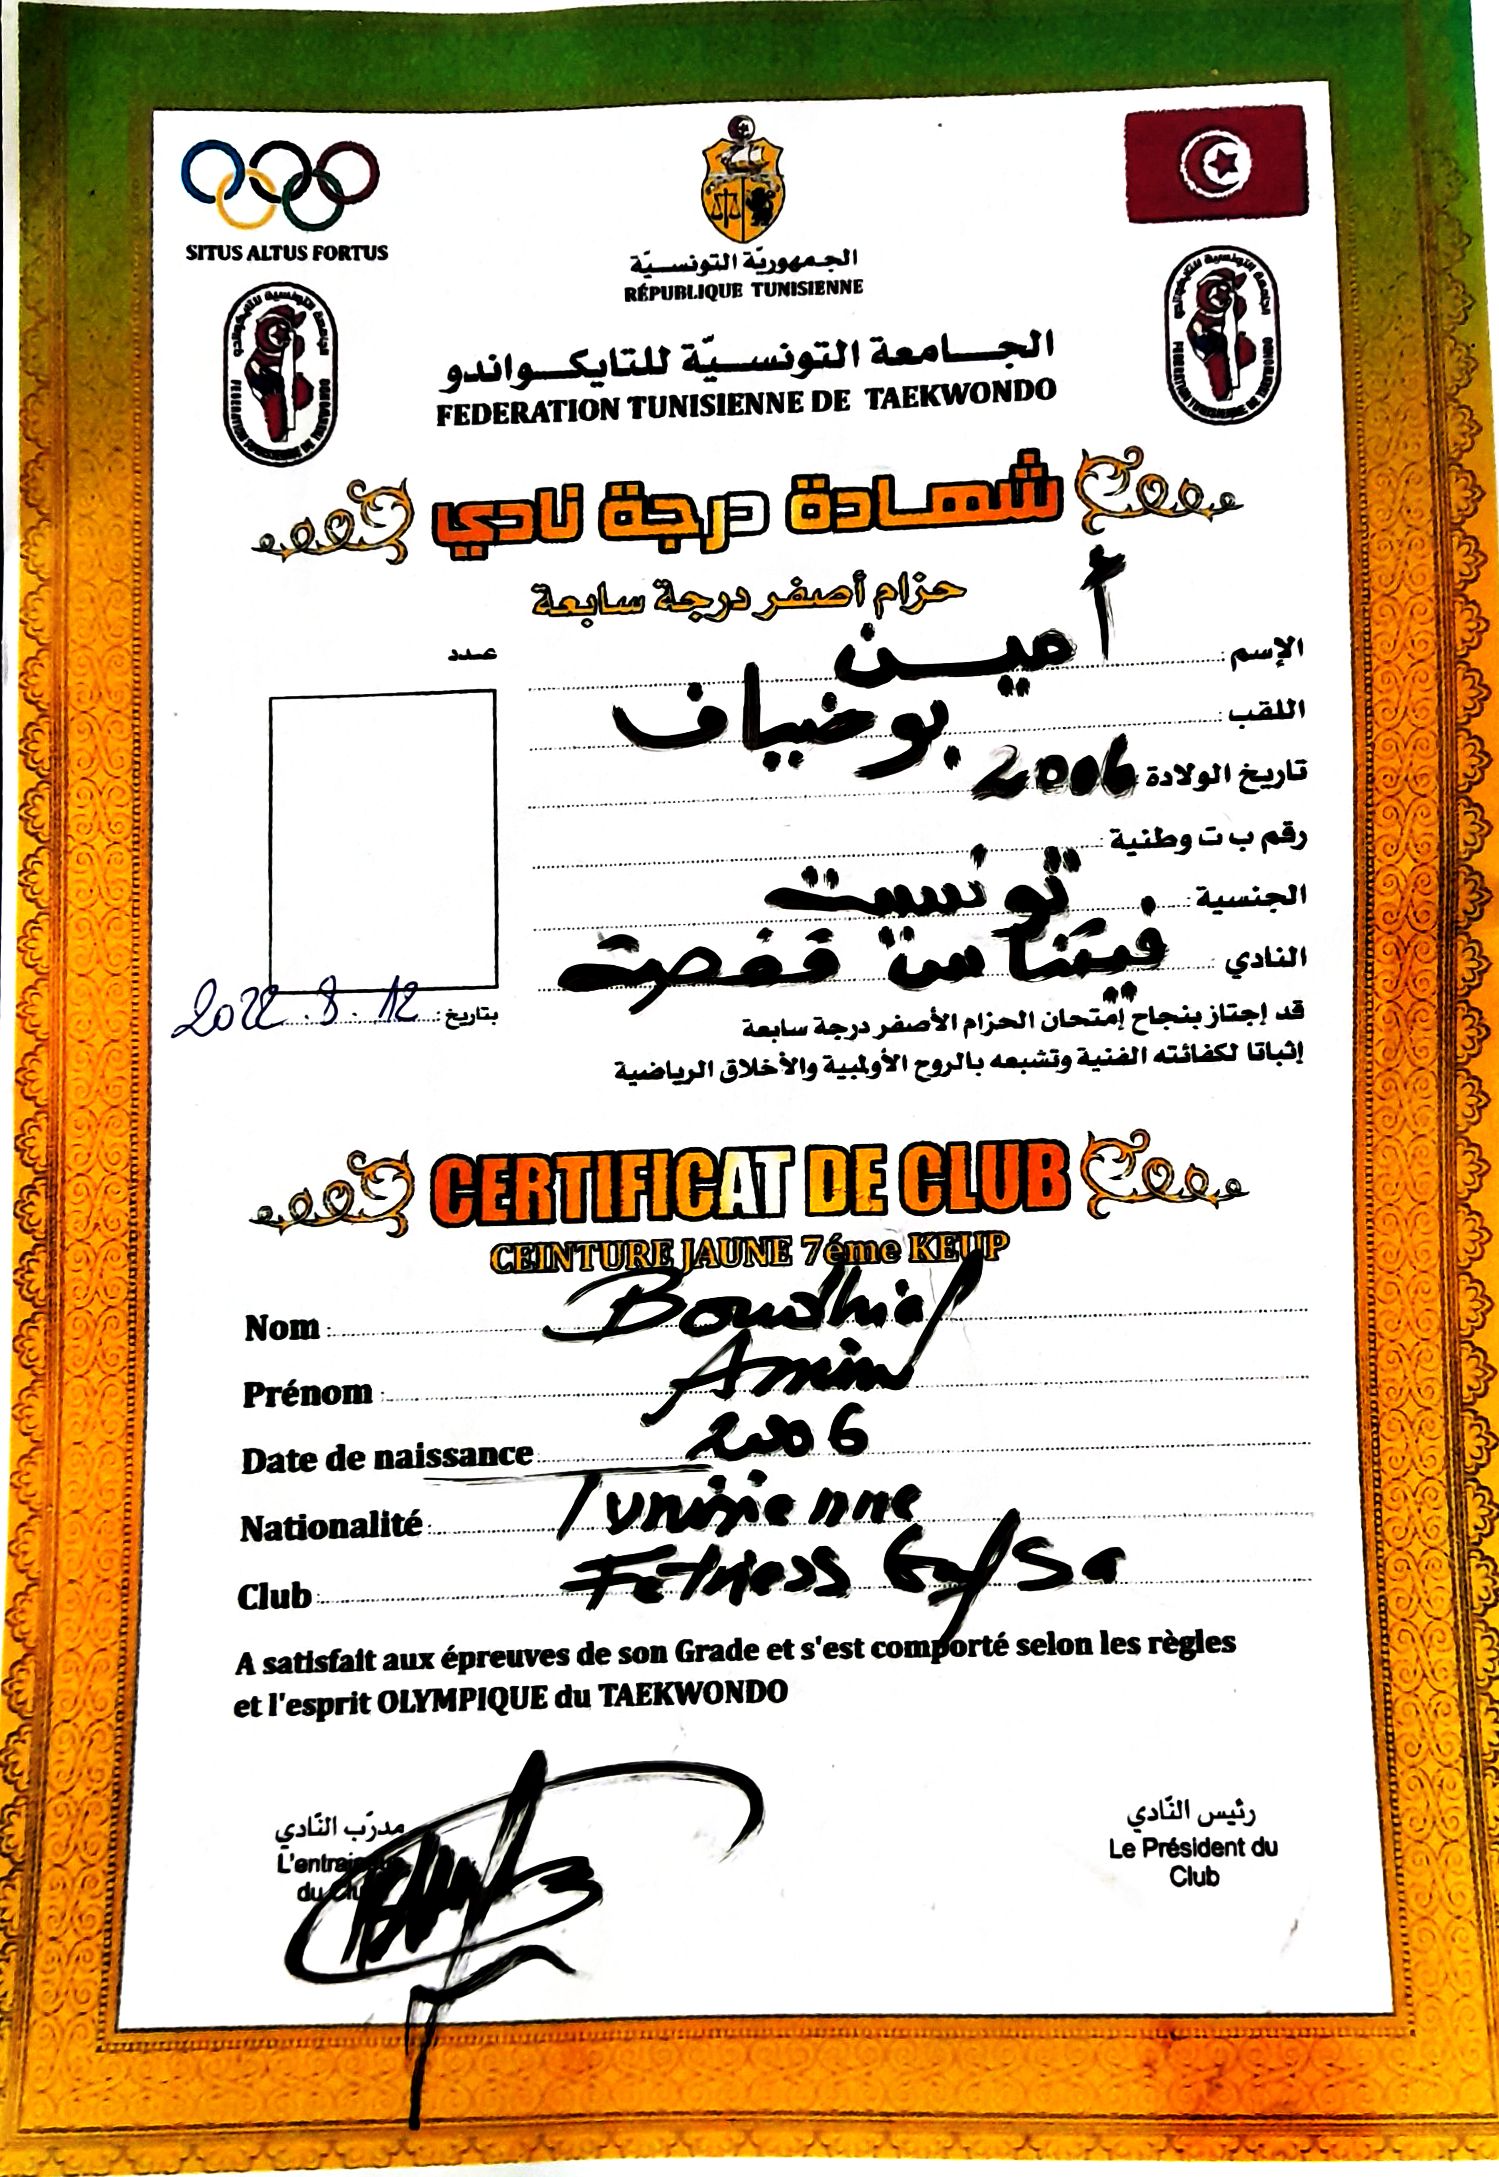 SITUS ALTUS FORTUS
الجمهوريّة التونسيّة
RÉPUBLIQUE TUNISIENNE
الجامعة التونسيّة للتايكواندو
FEDERATION TUNISIENNE DE TAEKWONDO
شهادة درجة نادي
حزام أصفر درجة سابعة
عدد
الإسم : أمين
اللقب : بوضياف
تاريخ الولادة 2006
رقم ب ت وطنية :
الجنسية : تونسية
النادي : فيتناس قفصة
بتاريخ : 12. 8. 2022
قد إجتاز بنجاح إمتحان الحزام الأصفر درجة سابعة
إثباتا لكفائته الفنية وتشبعه بالروح الأولمبية والأخلاق الرياضية
CERTIFICAT DE CLUB
CEINTURE JAUNE 7éme KEUP
Nom : Boudhiaf
Prénom : Amin
Date de naissance 2006
Nationalité : Tunisienne
Club : Fetness Gafsa
A satisfait aux épreuves de son Grade et s'est comporté selon les règles
et l'esprit OLYMPIQUE du TAEKWONDO
مدرّب النّادي
L'entraineur
du Club
رئيس النّادي
Le Président du
Club